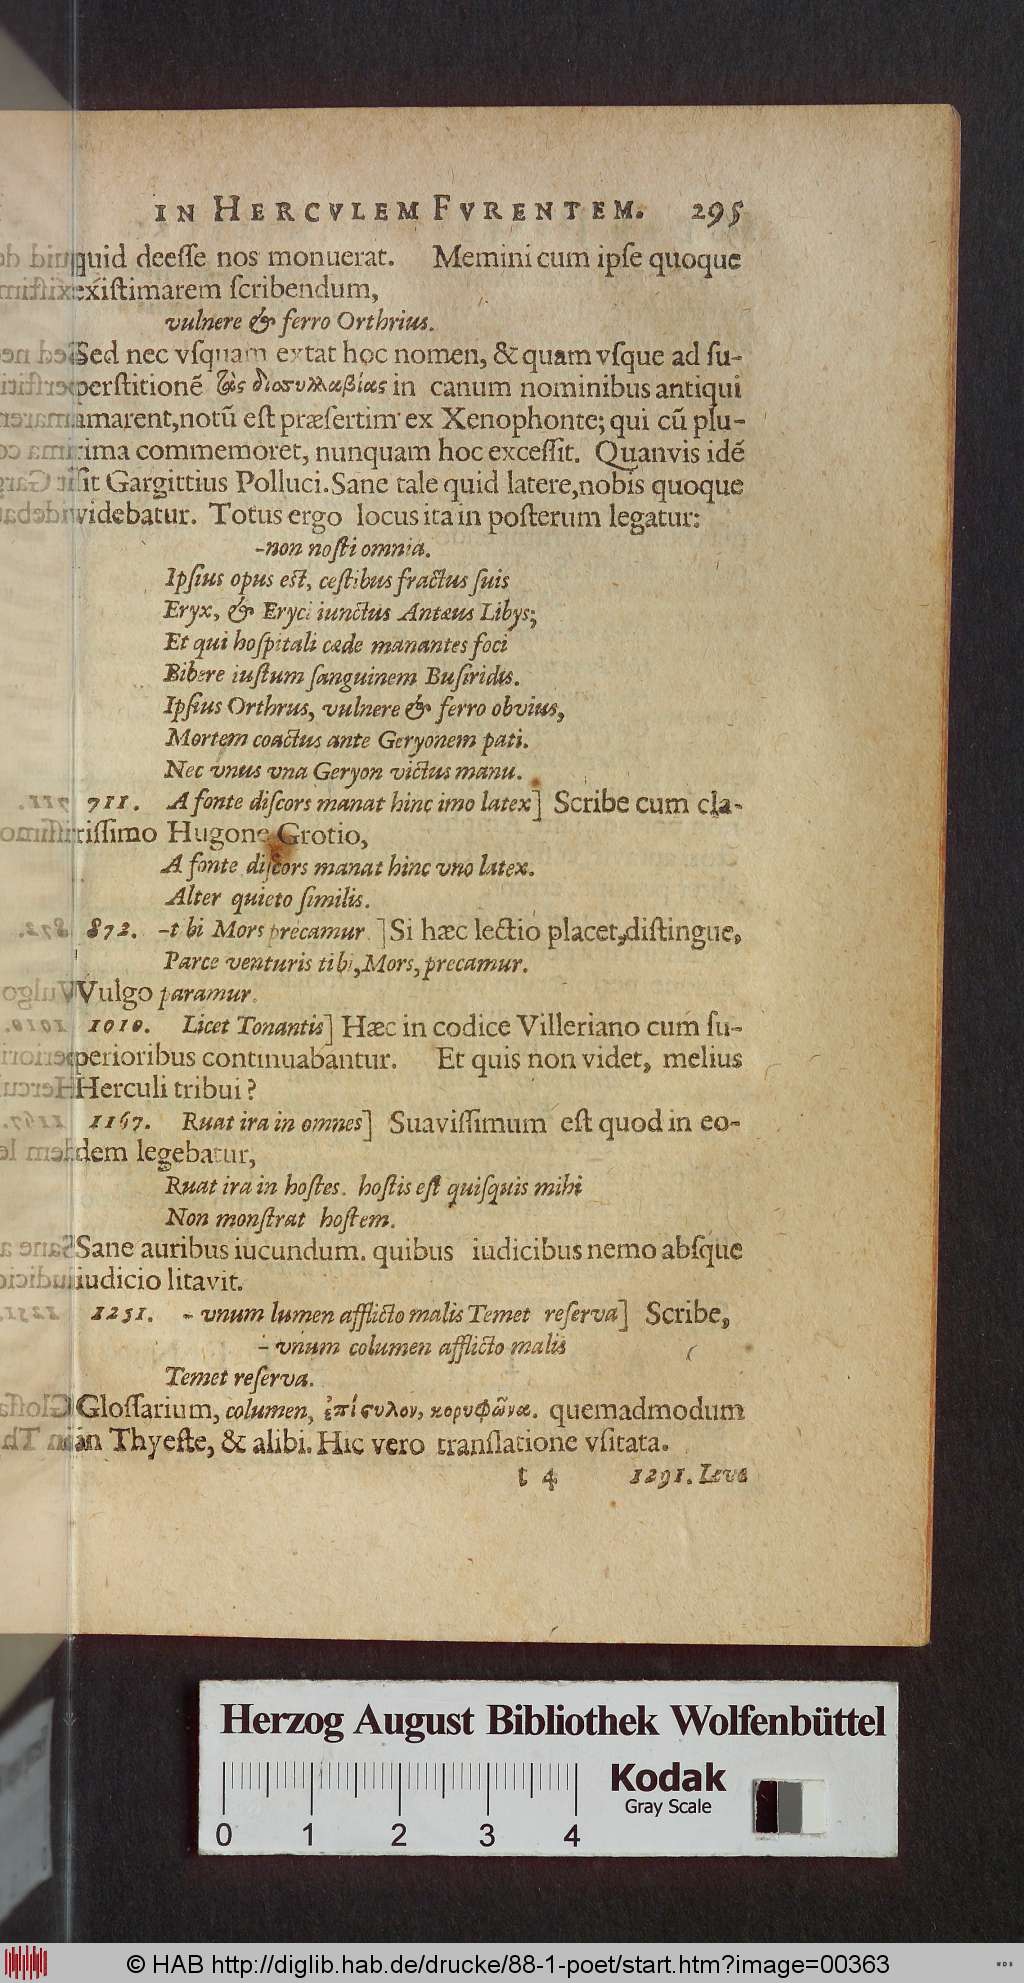 IN HERCVLEM FVRENTEM. 295
quid deesse nos monuerat. Memini cum ipse quoque
existimarem scribendum,
vulnere & ferro Orthrius.
Sed nec vsquam extat hoc nomen, & quam vsque ad su-
perstitionē τὰς δισυλλαβίας in canum nominibus antiqui
amarent, notū est præsertim ex Xenophonte; qui cū plu-
rima commemoret, nunquam hoc excessit. Quanvis idē
sit Gargittius Polluci. Sane tale quid latere, nobis quoque
videbatur. Totus ergo locus ita in posterum legatur:
-non nosti omnia.
Ipsius opus est, cestibus fractus suis
Eryx, & Eryci iunctus Antæus Libys;
Et qui hospitali cæde manantes foci
Bibere iustum sanguinem Busiridis.
Ipsius Orthrus, vulnere & ferro obvius,
Mortem coactus ante Geryonem pati.
Nec vnus vna Geryon victus manu.
711. A fonte discors manat hinc imo latex] Scribe cum cla-
rissimo Hugone Grotio,
A fonte discors manat hinc vno latex.
Alter quieto similis.
872. -t bi Mors precamur.] Si hæc lectio placet, distingue,
Parce venturis tibi, Mors, precamur.
Vulgo paramur.
1010. Licet Tonantis] Hæc in codice Villeriano cum su-
perioribus continuabantur. Et quis non videt, melius
Herculi tribui?
1167. Ruat ira in omnes] Suavissimum est quod in eo-
dem legebatur,
Ruat ira in hostes. hostis est quisquis mihi
Non monstrat hostem.
Sane auribus iucundum. quibus iudicibus nemo absque
iudicio litavit.
1251. - vnum lumen afflicto malis Temet reserva] Scribe,
- vnum columen afflicto malis
Temet reserva.
Glossarium, columen, ἐπίστυλον, κορυφῶνα. quemadmodum
in Thyeste, & alibi. Hic vero translatione vsitata.
t 4 1291. Leve
Herzog August Bibliothek Wolfenbüttel
0 1 2 3 4
Kodak
Gray Scale
© HAB http://diglib.hab.de/drucke/88-1-poet/start.htm?image=00363